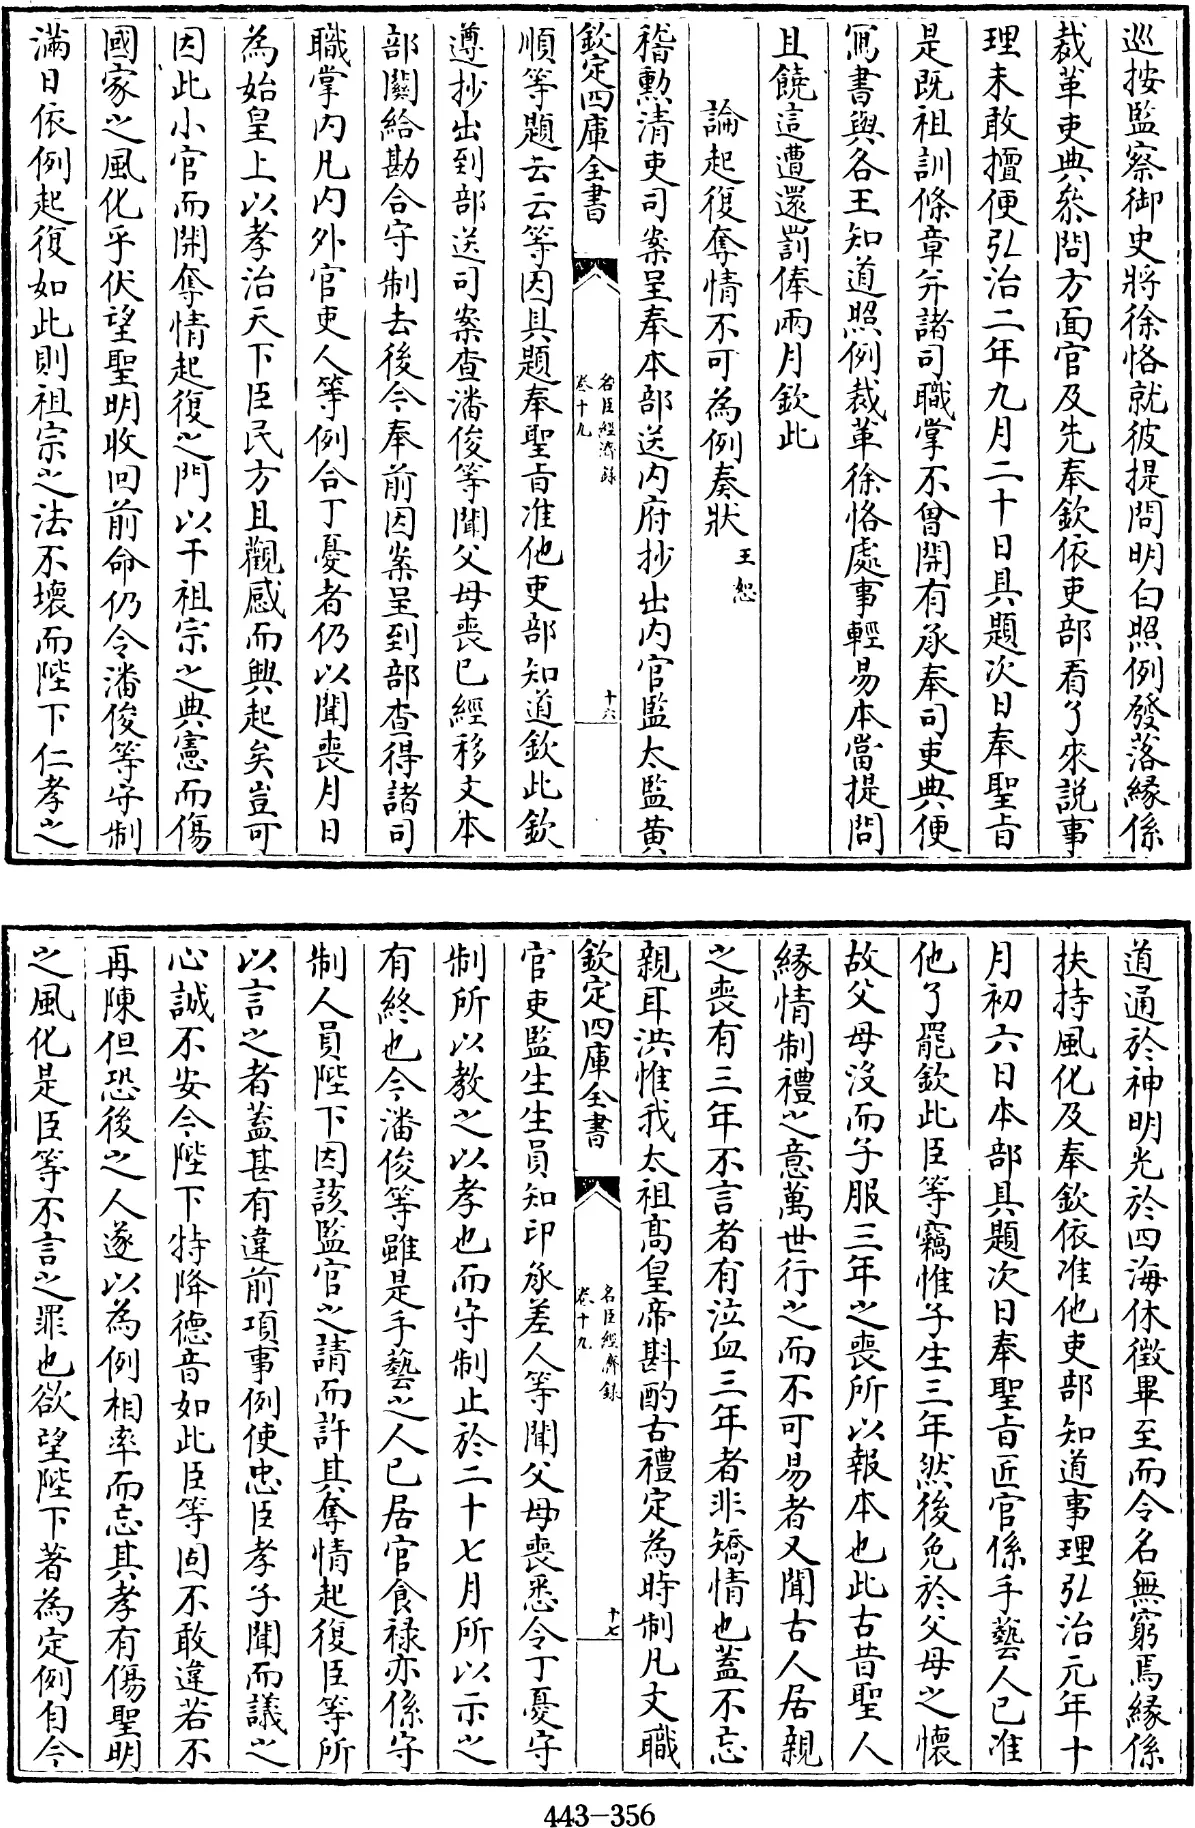 巡按監察御史將徐恪就彼提問明白照例發落縁係
裁革吏典叅問方面官及先奉欽依吏部看了來説事
理未敢擅便弘治二年九月二十日具題次日奉聖旨
是既祖訓條章并諸司職掌不曾開有承奉司吏典便
寫書與各王知道照例裁革徐恪處事輕易本當提問
且饒這遭還罰俸兩月欽此
論起復奪情不可為例奏狀 王恕
稽勲清吏司案呈奉本部送内府抄出内官監太監黄
欽定四庫全書 名臣經濟録 卷十九 十六
順等題云云等因具題奉聖旨准他吏部知道欽此欽
遵抄出到部送司案查潘俊等聞父母喪已經移文本
部關給勘合守制去後今奉前因案呈到部查得諸司
職掌内凡内外官吏人等例合丁憂者仍以聞喪月日
為始皇上以孝治天下臣民方且觀感而興起矣豈可
因此小官而開奪情起復之門以干祖宗之典憲而傷
國家之風化乎伏望聖明收回前命仍令潘俊等守制
滿日依例起復如此則祖宗之法不壞而陛下仁孝之
道通於神明光於四海休徴畢至而令名無窮焉縁係
扶持風化及奉欽依准他吏部知道事理弘治元年十
月初六日本部具題次日奉聖旨匠官係手藝人已准
他了罷欽此臣等竊惟子生三年然後免於父母之懷
故父母沒而子服三年之喪所以報本也此古昔聖人
縁情制禮之意萬世行之而不可易者又聞古人居親
之喪有三年不言者有泣血三年者非矯情也蓋不忘
親耳洪惟我太祖髙皇帝斟酌古禮定為時制凡文職
欽定四庫全書 名臣經濟録 卷十九 十七
官吏監生生員知印承差人等聞父母喪悉令丁憂守
制所以教之以孝也而守制止於二十七月所以示之
有終也今潘俊等雖是手藝之人已居官食禄亦係守
制人員陛下因該監官之請而許其奪情起復臣等所
以言之者蓋甚有違前項事例使忠臣孝子聞而議之
心誠不安今陛下特降德音如此臣等固不敢違若不
再陳但恐後之人遂以為例相率而忘其孝有傷聖明
之風化是臣等不言之罪也欲望陛下著為定例自今
443-356